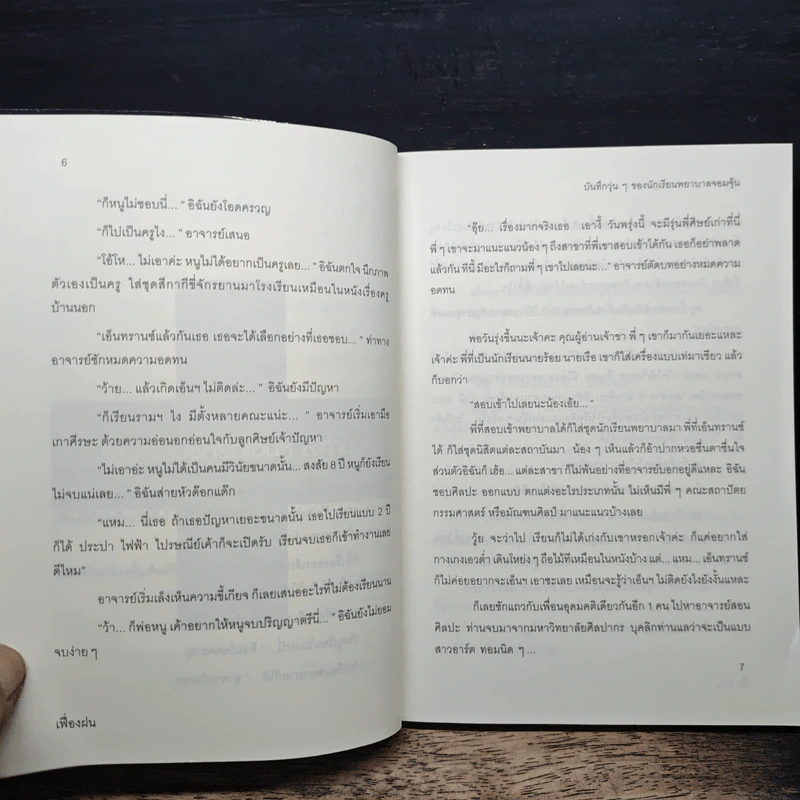 6
"ก็หนูไม่ชอบนี่... " อิฉันยังโอดครวญ
"ก็ไปเป็นครูไง... " อาจารย์เสนอ
"โอ้โห... ไม่เอาค่ะ หนูไม่ได้อยากเป็นครูเลย... " อิฉันตกใจ นึกภาพ
ตัวเองเป็นครู ใส่ชุดสีกากีขี่จักรยานมาโรงเรียนเหมือนในหนังเรื่องครู
บ้านนอก
"เอ็นทรานซ์แล้วกันเธอ เธอจะได้เลือกอย่างที่เธอชอบ... " ท่าทาง
อาจารย์ชักหมดความอดทน
"ว้าย... แล้วเกิดเอ็นฯ ไม่ติดล่ะ... " อิฉันยังมีปัญหา
"ก็เรียนรามฯ ไง มีตั้งหลายคณะแน่ะ... " อาจารย์เริ่มเอามือ
เกาศีรษะ ด้วยความอ่อนอกอ่อนใจกับลูกศิษย์เจ้าปัญหา
"ไม่เอาอ่ะ หนูไม่ได้เป็นคนมีวินัยขนาดนั้น... สงสัย 8 ปี หนูก็ยังเรียน
ไม่จบแน่เลย... " อิฉันส่ายหัวด๊อกแด๊ก
"แหม... นี่เธอ ถ้าเธอปัญหาเยอะขนาดนั้น เธอไปเรียนแบบ 2 ปี
ก็ได้ ประปา ไฟฟ้า ไปรษณีย์เค้าก็จะเปิดรับ เรียนจบเธอก็เข้าทำงานเลย
ดีไหม"
อาจารย์เริ่มเล็งเห็นความขี้เกียจ ก็เลยเสนออะไรที่ไม่ต้องเรียนนาน
"ว้า... ก็พ่อหนู เค้าอยากให้หนูจบปริญญาตรีนี่... " อิฉันยังไม่ยอม
จบง่าย ๆ
เฟื่องฝน
บันทึกวุ่น ๆ ของนักเรียนพยาบาลจอมจุ้น
"อุ๊ย... เรื่องมากจริงเธอ เอางี้ วันพรุ่งนี้ จะมีรุ่นพี่ศิษย์เก่าที่นี่
พี่ ๆ เขาจะมาแนะแนวน้อง ๆ ถึงสาขาที่พี่เขาสอบเข้าได้กัน เธอก็อย่าพลาด
แล้วกัน ทีนี้ มีอะไรก็ถามพี่ ๆ เขาไปเลยนะ... " อาจารย์ตัดบทอย่างหมดความ
อดทน
พอวันรุ่งขึ้นนะเจ้าคะ คุณผู้อ่านเจ้าขา พี่ ๆ เขาก็มากันเยอะแหละ
เจ้าค่ะ พี่ที่เป็นนักเรียนนายร้อย นายเรือ เขาก็ใส่เครื่องแบบเท่มาเชียว แล้ว
ก็บอกว่า
"สอบเข้าไปเลยนะน้องเอ้ย... "
พี่ที่สอบเข้าพยาบาลได้ก็ใส่ชุดนักเรียนพยาบาลมา พี่ที่เอ็นทรานซ์
ได้ ก็ใส่ชุดนิสิตแต่ละสถาบันมา น้อง ๆ เห็นแล้วก็อ้าปากหวอชื่นตาชื่นใจ
ส่วนตัวอิฉันก็ เฮ้อ... แต่ละสาขา ก็ไม่พ้นอย่างที่อาจารย์บอกอยู่ดีแหละ อิฉัน
ชอบศิลปะ ออกแบบ ตกแต่งอะไรประเภทนั้น ไม่เห็นมีพี่ ๆ คณะสถาปัตย
กรรมศาสตร์ หรือมัณฑนศิลป์ มาแนะแนวบ้างเลย
วุ้ย จะว่าไป เรียนก็ไม่ได้เก่งกับเขาหรอกเจ้าค่ะ ก็แค่อยากใส่
กางเกงเอวต่ำ เดินโหย่ง ๆ ถือไม้ทีเหมือนในหนังบ้าง แต่... แหม... เอ็นทรานซ์
ก็ไม่ค่อยอยากจะเอ็นฯ เอาซะเลย เหมือนจะรู้ว่าเอ็นฯ ไม่ติดยังไงยังงั้นแหละ
ก็เลยชักแถวกับเพื่อนอุดมคติเดียวกันอีก 1 คน ไปหาอาจารย์สอน
ศิลปะ ท่านจบมาจากมหาวิทยาลัยศิลปากร บุคลิกท่านแลว่าจะเป็นแบบ
สาวอาร์ต ทอมนิด ๆ ...
7